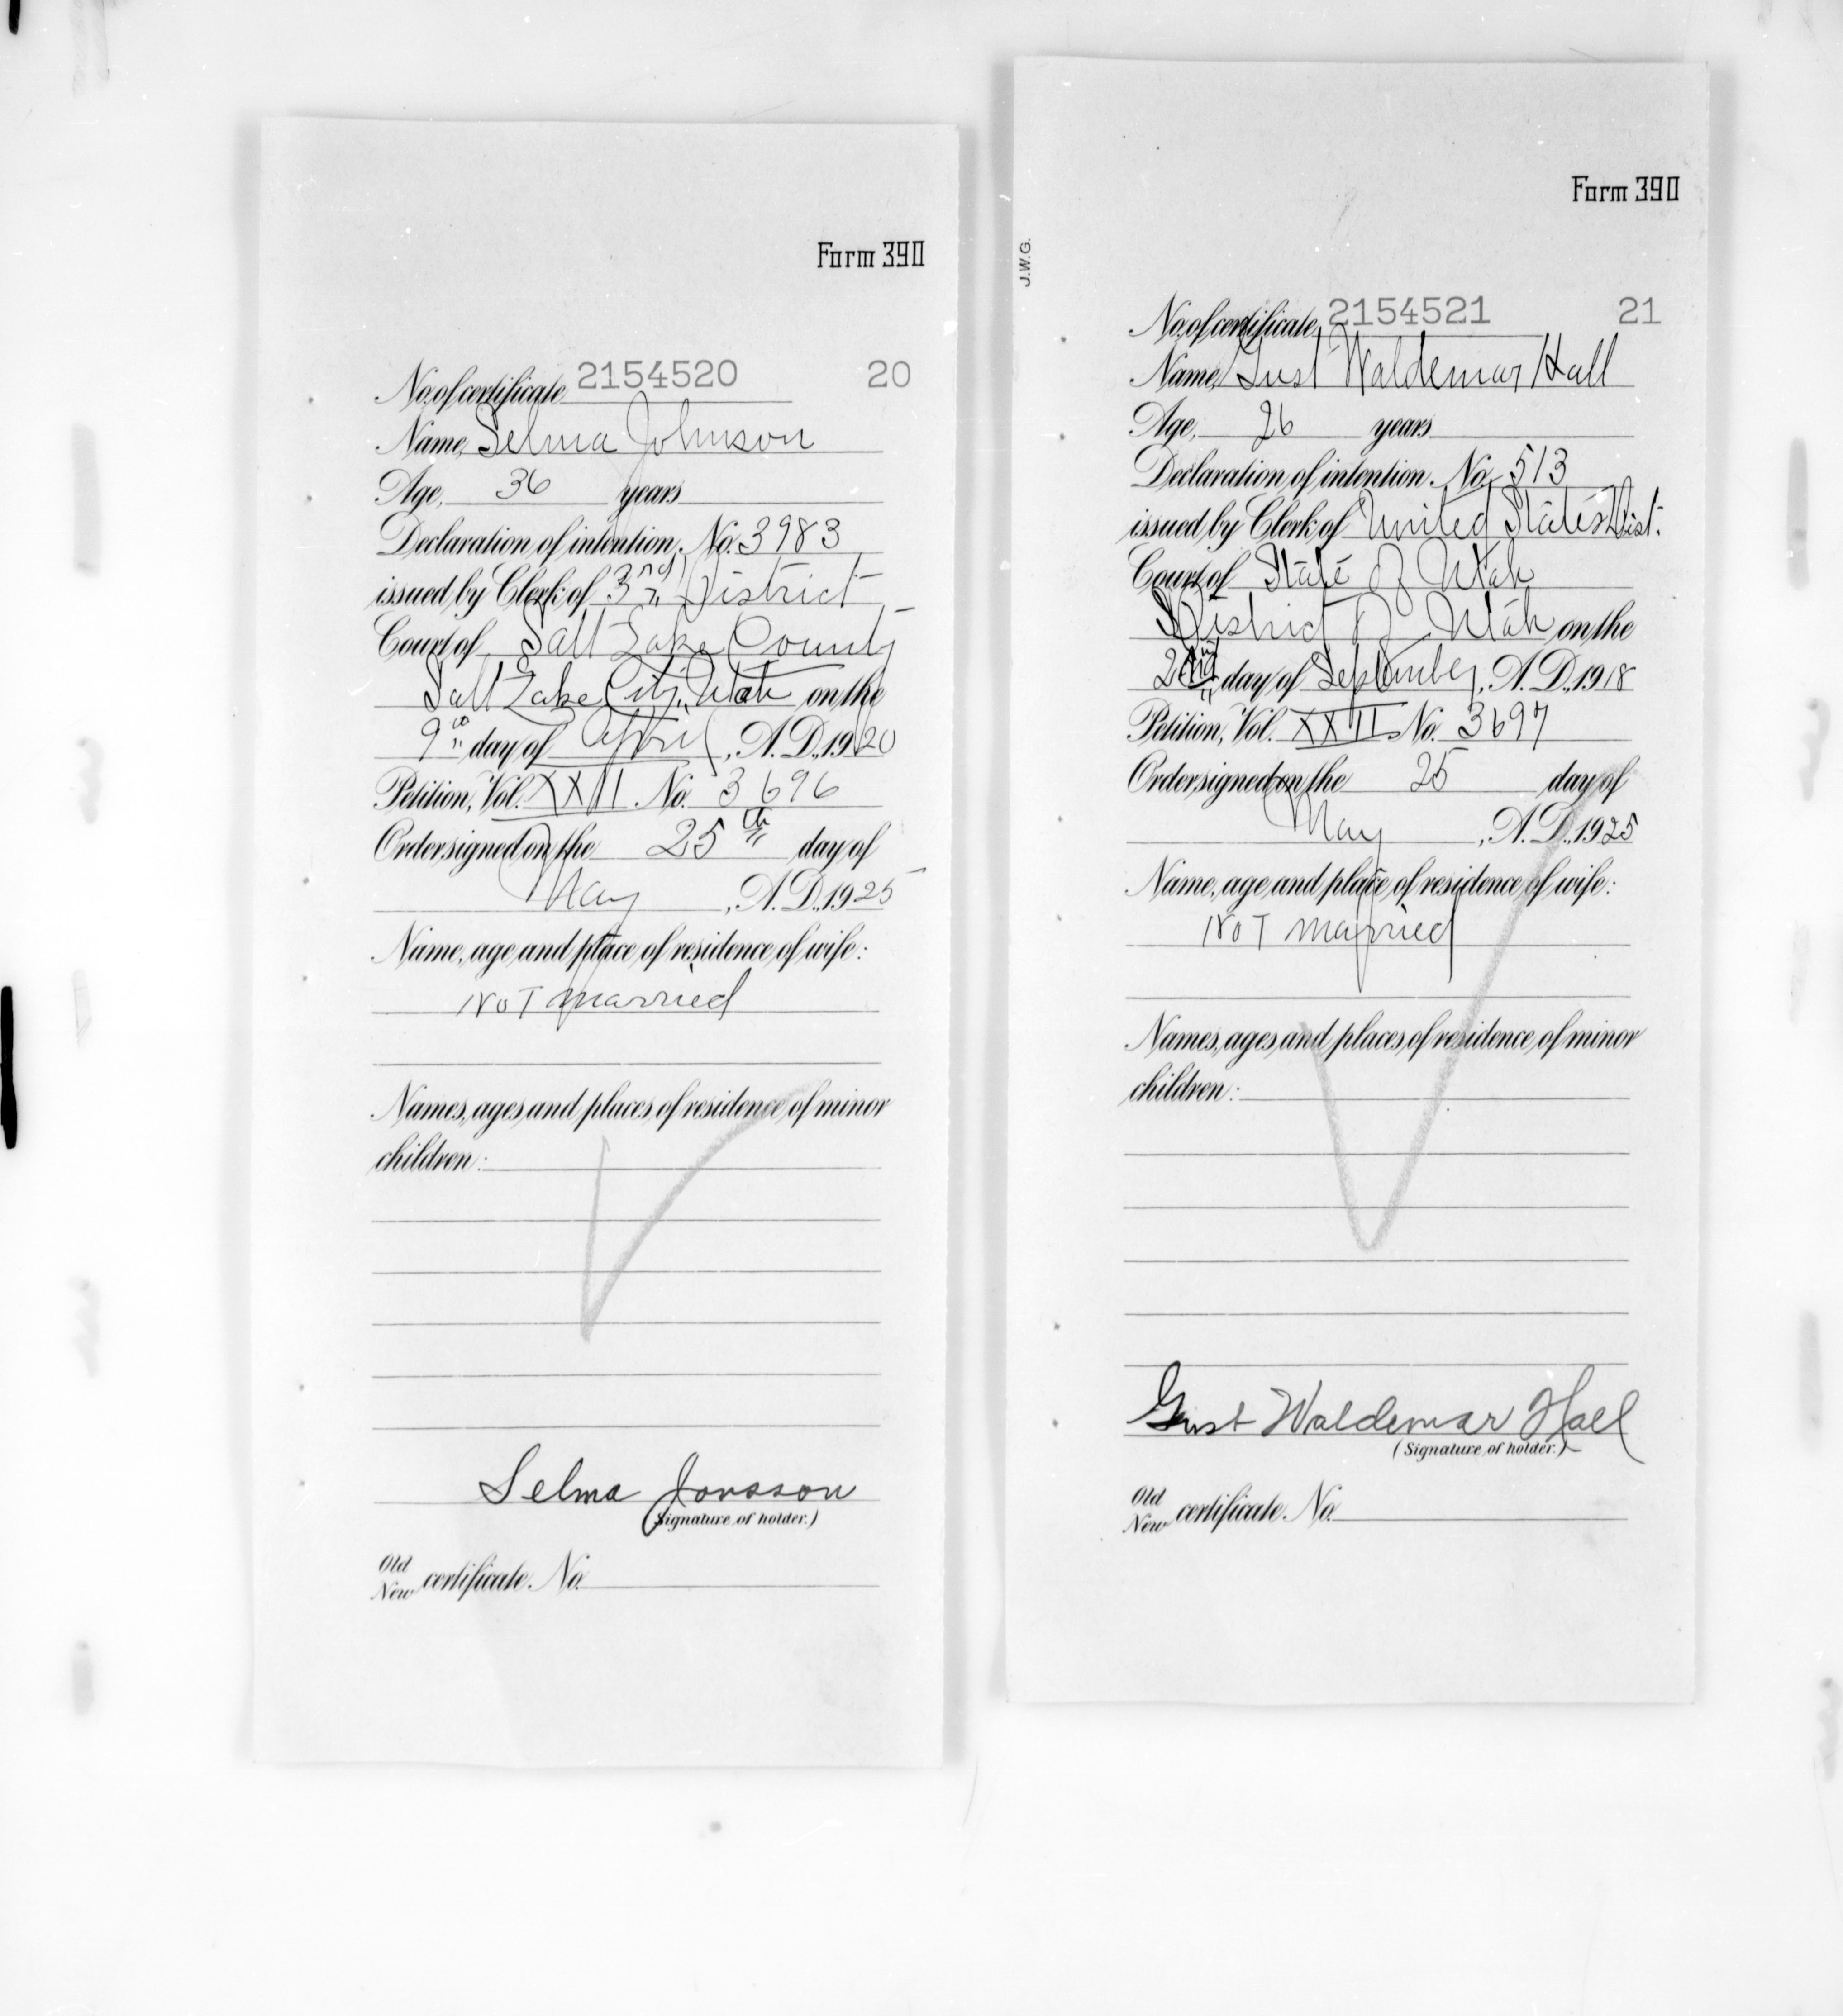 Form 390
No. of certificate 2154520 20
Name, Selma Johnson
Age, 36 years
Declaration of intention, No. 3983
issued by Clerk of 3rd District
Court of Salt Lake County
Salt Lake City, Utah on the
9th day of April, A.D., 1920
Petition, Vol. XXII No. 3696
Order signed on the 25th day of
May, A.D., 1925
Name, age and place of residence of wife:
Not married
Names, ages and places of residence of minor
children:
Selma Jonsson
(Signature of holder.)
Old
New certificate No.
J.W.G.
Form 390
No. of certificate 2154521 21
Name, Gust Waldemar Hall
Age, 26 years
Declaration of intention, No. 513
issued by Clerk of United States Dist.
Court of State of Utah
District of Utah on the
day of September, A.D., 1918
Petition, Vol. XXII No. 3697
Order signed on the 25 day of
May, A.D., 1925
Name, age and place of residence of wife:
Not married
Names, ages and places of residence of minor
children:
Gust Waldemar Hall
(Signature of holder.)
Old
New certificate No.